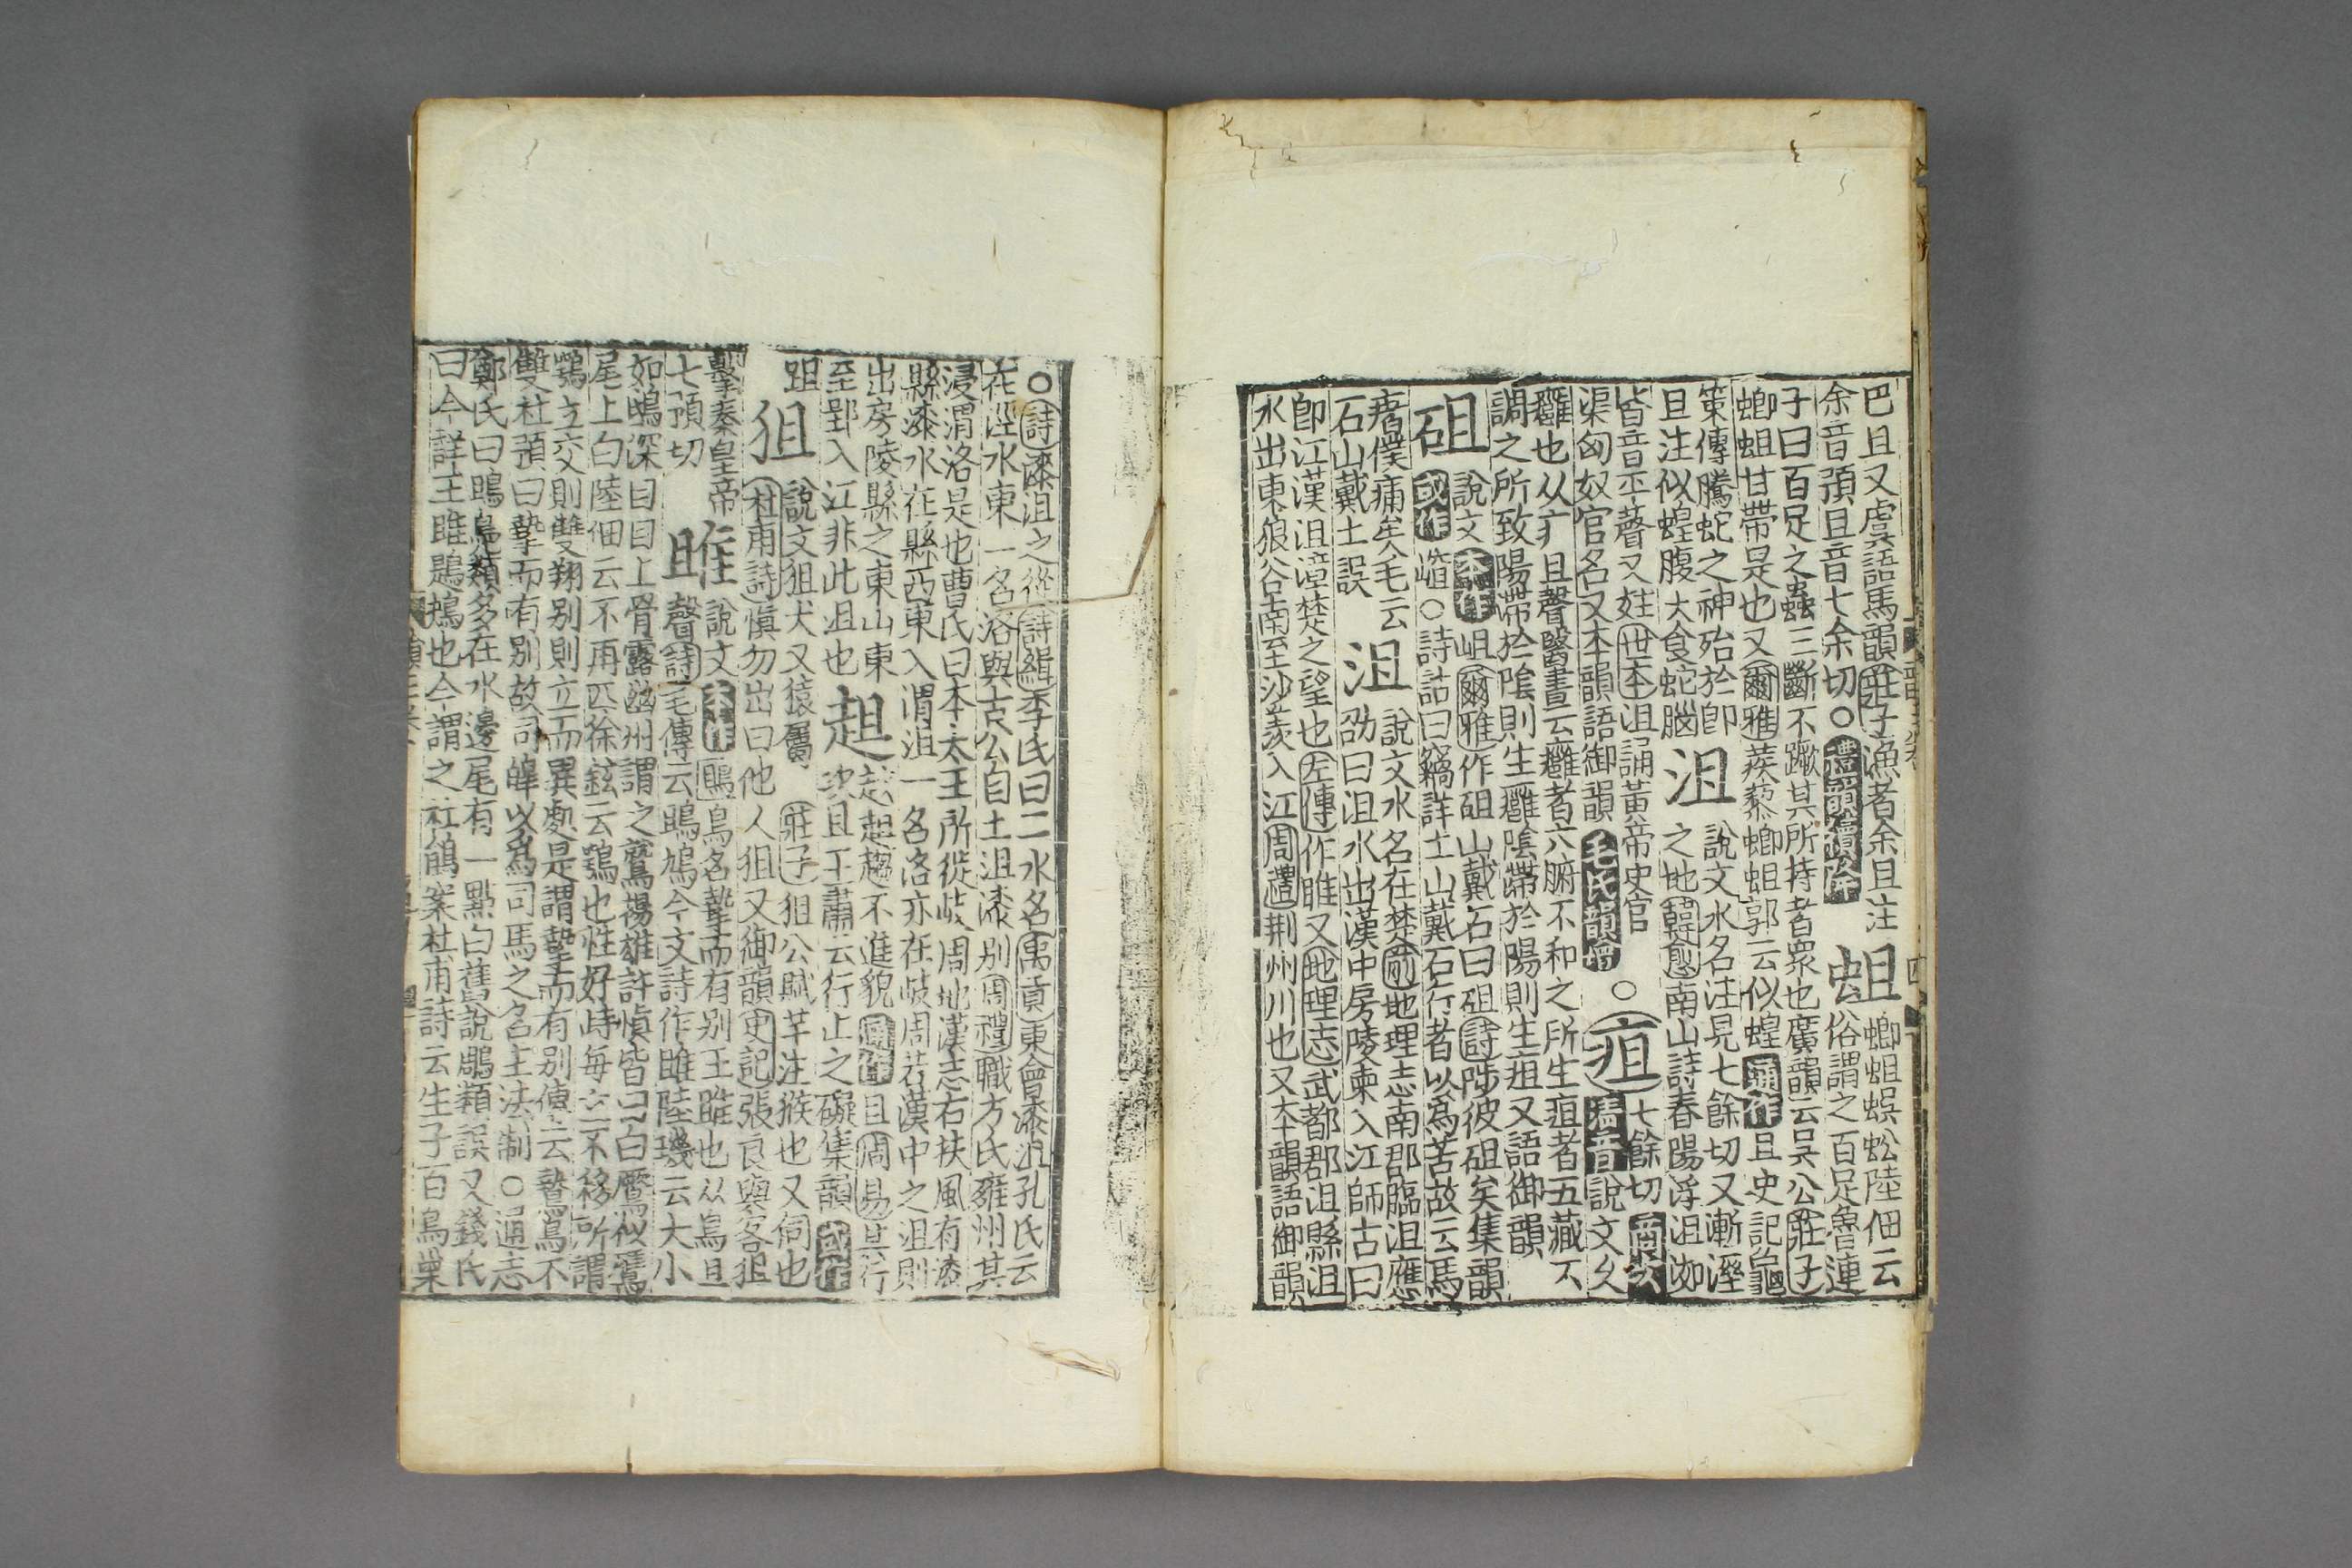 巴且又虞語馬韻莊子漁者余且注
余音預且音七余切○禮韻續降
蛆
蝍蛆蜈蚣陸佃云
俗謂之百足魯連
子曰百足之蟲三斷不蹶其所持者衆也廣韻云吳公莊子
蝍蛆甘帶是也又爾雅蒺藜蝍蛆郭云似蝗通作且史記龜
策傳騰蛇之神殆於卽
且注似蝗腹大食蛇腦
沮
說文水名注見七餘切又漸溼
之地韓愈南山詩春陽浮沮洳
皆音平聲又姓世本沮誦黃帝史官
渠匈奴官名又本韻語御韻毛氏韻增
○疽
七餘切商次
清音說文久
癰也从疒且聲醫書云癰者六腑不和之所生疽者五藏不
調之所致陽滯於陰則生癰陰滯於陽則生疽又語御韻
砠
說文本作岨爾雅作砠山戴石曰砠詩陟彼砠矣集韻
或作㠎○詩詁曰竊詳土山戴石行者以爲苦故云馬
瘏僕痡矣今毛云
石山戴土誤
沮
說文水名在楚前地理志南郡臨沮應
劭曰沮水出漢中房陵東入江師古曰
卽江漢沮漳楚之望也左傳作雎又地理志武都郡沮縣沮
水出東狼谷南至沙羨入江周禮荆州川也又本韻語御韻
○詩漆沮之從詩緝李氏曰二水名禹貢東會漆沮孔氏云
在涇水東一名洛與古公自土沮漆別周禮職方氏雍州其
浸渭洛是也曹氏曰本太王所從岐周地漢志右扶風有漆
縣漆水在縣西東入渭沮一名洛亦在岐周若漢中之沮則
出房陵縣之東山東
至郢入江非此沮也
趄
趑趄趨不進貌通作且周易其行
次且王肅云行止之礙集韻或作
跙
狙
說文狙犬又猿屬莊子狙公賦芧注猴也又伺也
杜甫詩愼勿出口他人狙又御韻史記張良與客狙
擊秦皇帝
七預切
雎
說文本作鴡鳥名摯而有別王雎也从鳥且
聲詩毛傳云鴡鳩今文詩作雎陸璣云大小
如鴟深目目上骨露幽州謂之鷲揚雄許愼皆曰白鷢似鷹
尾上白陸佃云不再匹徐鉉云鶚也性好峙每立不移所謂
鶚立交則雙翔別則立而異處是謂摯而有別傳云鷙鳥不
雙杜預曰摯而有別故司皥以爲司馬之官主法制○通志
鄭氏曰鴡鳧類多在水邊尾有一點白舊說鵰類誤又錢氏
曰今詳王雎鶗鴂也今謂之杜鵑案杜甫詩云生子百鳥巢